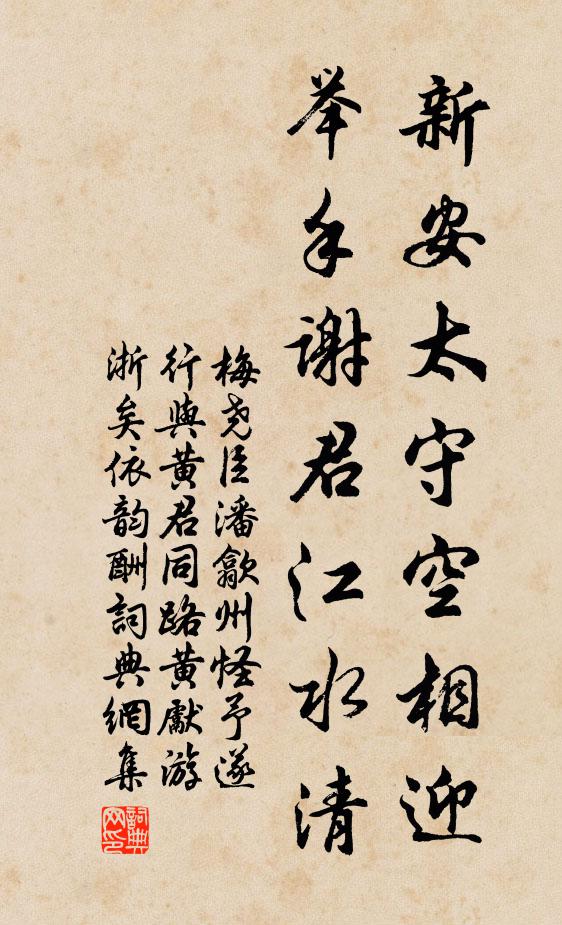 新安太守空相迎
举手謝君江水清
梅尧臣潘歙州怪予遂
行與黄君同路黄獻游
浙矣依韵酬詞典網集
詞典网印